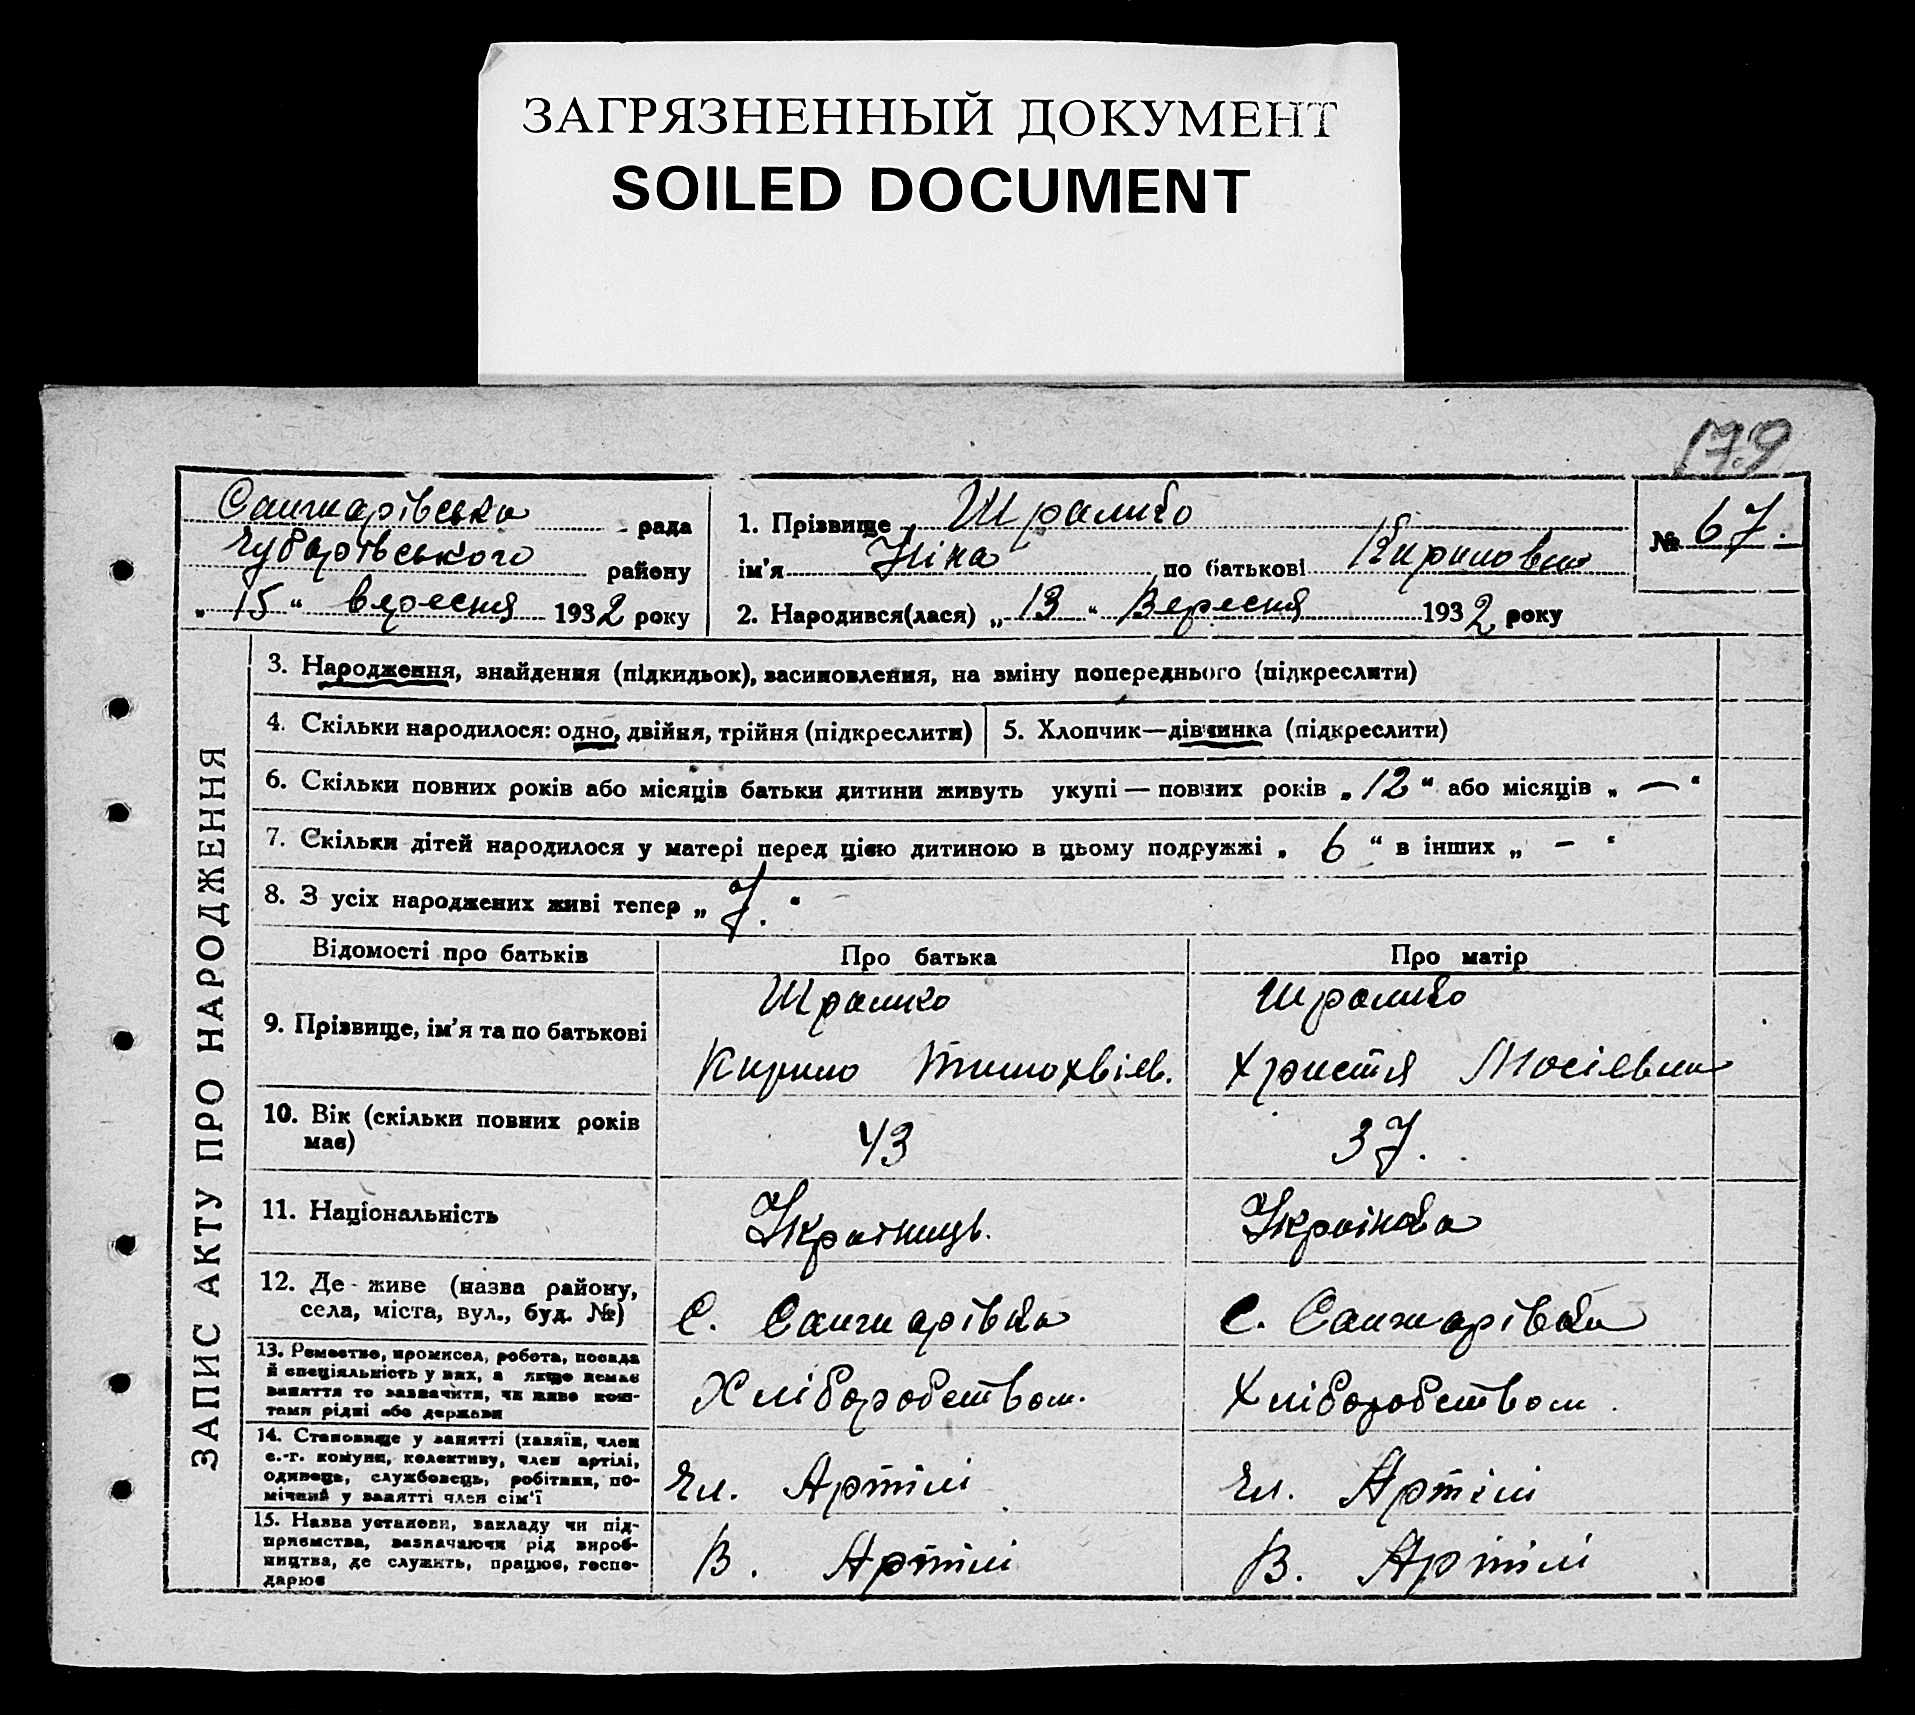 ЗАГРЯЗНЕННЫЙ ДОКУМЕНТ
SOILED DOCUMENT
179
Санжарівська рада
Чубарівського району
„ 15 “ вересня 1932 року
1. Прізвище Шрамко
ім'я Ніна по батькові Кириловна
2. Народився(лася) „ 13 “ Вересня 1932 року
№ 67.
ЗАПИС АКТУ ПРО НАРОДЖЕННЯ
3. Народження, знайдення (підкидьок), засиновлення, на зміну попереднього (підкреслити)
4. Скільки народилося: одно, двійня, трійня (підкреслити)
5. Хлопчик—дівчинка (підкреслити)
6. Скільки повних років або місяців батьки дитини живуть укупі — повних років „ 12 “ або місяців „ — “
7. Скільки дітей народилося у матері перед цією дитиною в цьому подружжі „ 6 “ в інших „ — “
8. З усіх народжених живі тепер „ 7. “
Відомості про батьків Про батька Про матір
9. Прізвище, ім'я та по батькові
Шрамко
Кирило Тимохвієв.
Шрамко
Христя Мосієвна
10. Вік (скільки повних років
має)
43
37.
11. Національність
Українець.
Українка
12. Де живе (назва району,
села, міста, вул., буд. №)
С. Санжарівка
С. Санжарівка
13. Ремество, промисел, робота, посада
й спеціяльність у них, а якщо немає
заняття то зазначити, чи живе кош-
тами рідні або держави
Хліборобством.
Хліборобством.
14. Становище у занятті (хазяїн, член
с.-г. комуни, колективу, член артілі,
одинець, службовець, робітник, по-
мічний у занятті член сім'ї
Чл. Артілі
Чл. Артілі
15. Назва установи, закладу чи під-
приємства, зазначаючи рід вироб-
ництва, де служить, працює, госпо-
дарює
В. Артілі
В. Артілі